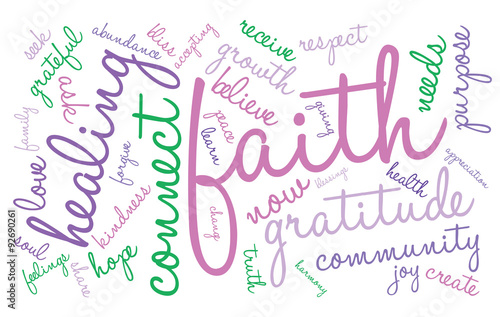 seek
grateful
abundance
bliss
accepting
receive
respect
needs
purpose
ask
healing
growth
believe
family
connect
faith
peace
giving
learn
forgive
love
kindness
now
blessings
health
appreciation
gratitude
change
soul
feelings
share
hope
community
truth
harmony
joy
create
Adobe Stock | #92690261